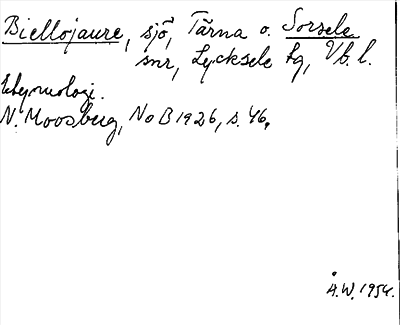 Biellojaure, sjö, Tärna o. Sorsele
snr, Lycksele tg, Vb. l.
Etymologi.
N. Moosberg, NoB 1926, s. 46,
Å.W. 1954.